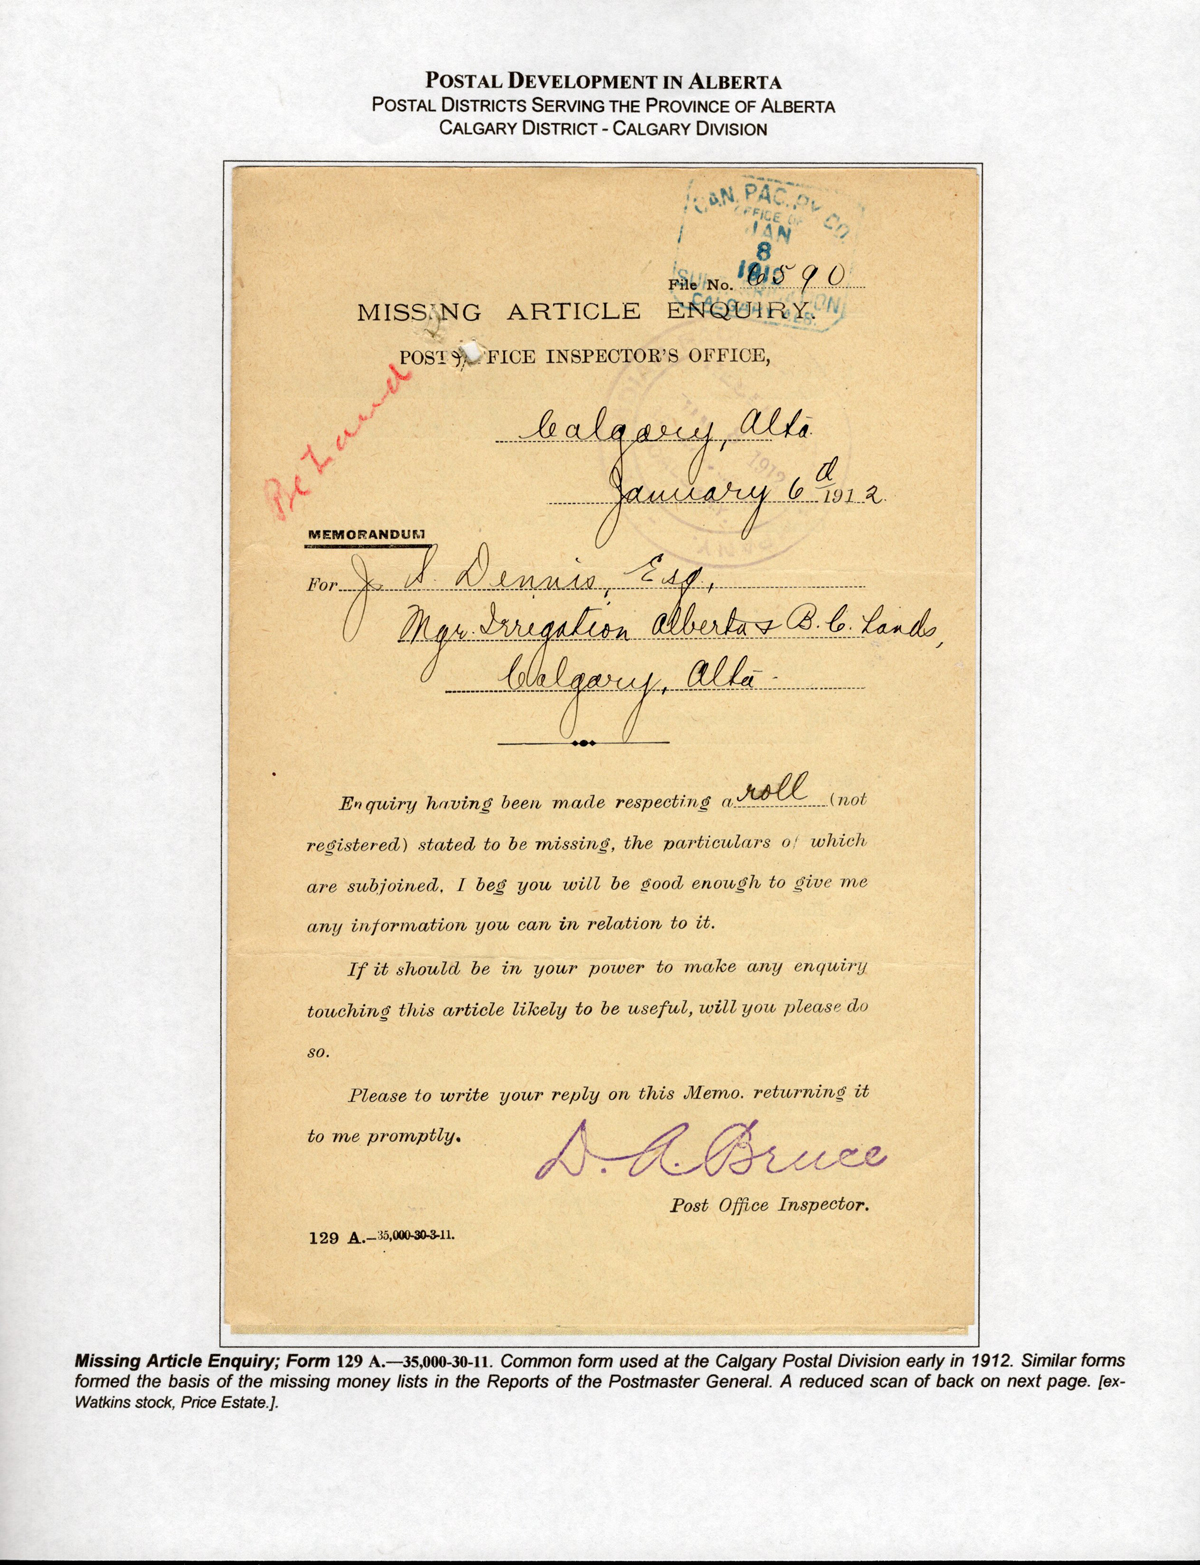 POSTAL DEVELOPMENT IN ALBERTA
POSTAL DISTRICTS SERVING THE PROVINCE OF ALBERTA
CALGARY DISTRICT - CALGARY DIVISION
CAN. PAC. RY. CO.
OFFICE OF
JAN
8
CALGARY
File No. 6590
MISSING ARTICLE ENQUIRY.
POST OFFICE INSPECTOR'S OFFICE,
Calgary, Alta
January 6th 1912.
1912
MEMORANDUM
For J. S. Dennis, Esq,
Mgr. Irrigation Alberta & B. C. Lands,
Calgary, Alta.
Enquiry having been made respecting a roll (not
registered) stated to be missing, the particulars of which
are subjoined, I beg you will be good enough to give me
any information you can in relation to it.
If it should be in your power to make any enquiry
touching this article likely to be useful, will you please do
so.
Please to write your reply on this Memo. returning it
to me promptly.
D. A. Bruce
Post Office Inspector.
129 A.—35,000-30-3-11.
Missing Article Enquiry; Form 129 A.—35,000-30-11. Common form used at the Calgary Postal Division early in 1912. Similar forms
formed the basis of the missing money lists in the Reports of the Postmaster General. A reduced scan of back on next page. [ex-
Watkins stock, Price Estate.].